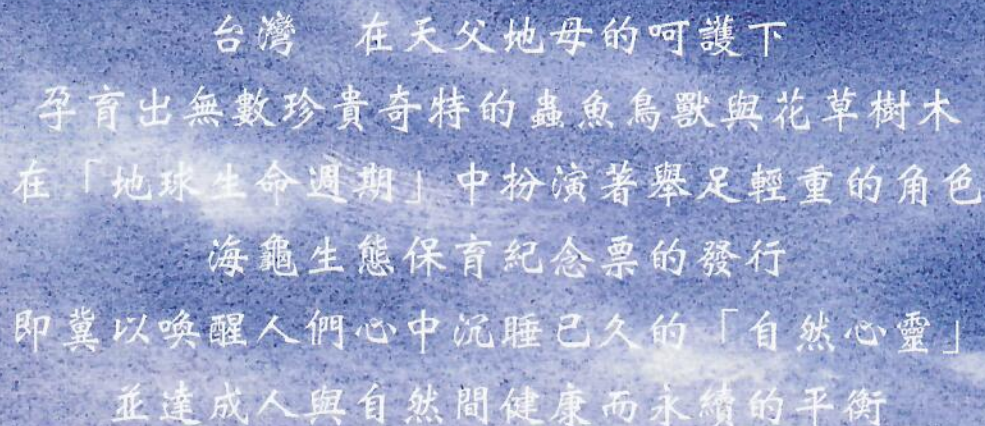 台灣　在天父地母的呵護下
孕育出無數珍貴奇特的蟲魚鳥獸與花草樹木
在「地球生命週期」中扮演著舉足輕重的角色
海龜生態保育紀念票的發行
即冀以喚醒人們心中沉睡已久的「自然心靈」
並達成人與自然間健康而永續的平衡